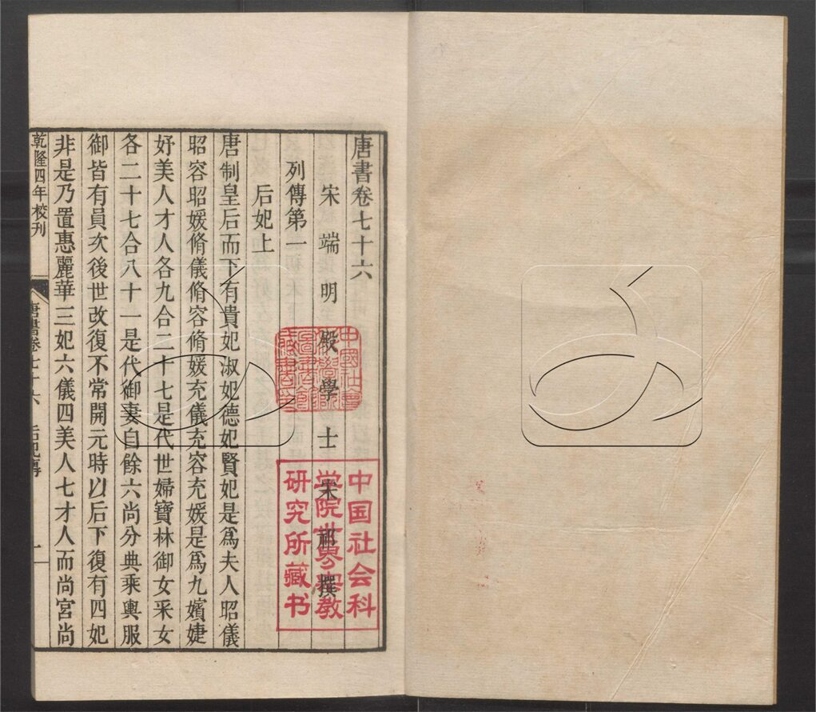 唐書卷七十六
宋端明殿學士宋祁撰
列傳第一
后妃上
唐制皇后而下有貴妃淑妃德妃賢妃是爲夫人昭儀
昭容昭媛脩儀脩容脩媛充儀充容充媛是爲九嬪婕
妤美人才人各九合二十七是代世婦寶林御女采女
各二十七合八十一是代御妻自餘六尚分典乘輿服
御皆有員次後世改復不常開元時以后下復有四妃
非是乃置惠麗華三妃六儀四美人七才人而尚宮尚
乾隆四年校刊
唐書卷七十六 后妃傳
一
中国社会科
学院世界宗教
研究所藏书